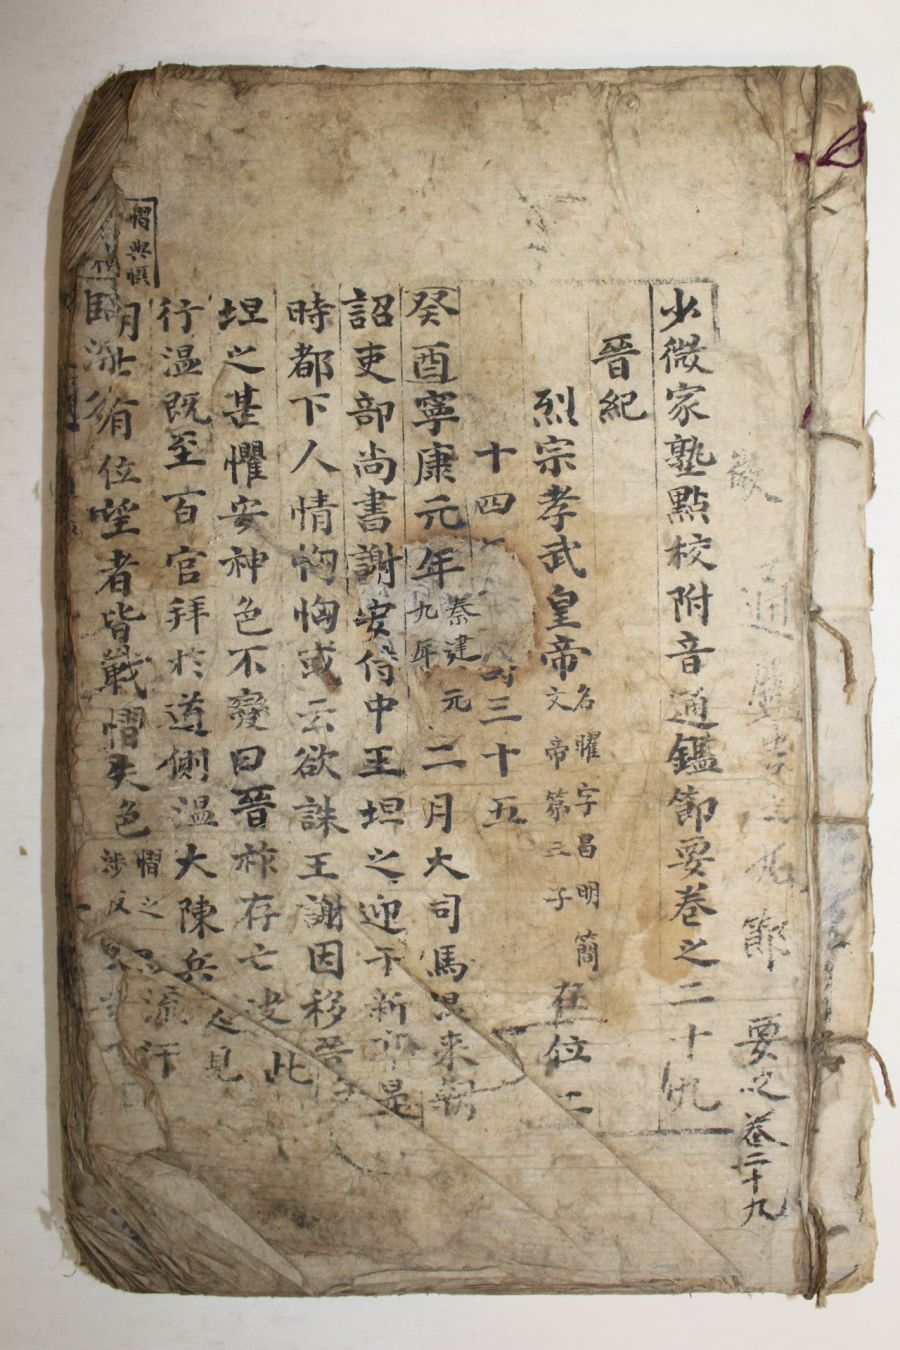 少微家塾點校附音通鑑節要卷之二十九
晉紀
烈宗孝武皇帝 名曜字昌明簡文帝第三子 在位二
十四 三十五
癸酉寧康元年 秦建元九年 二月大司馬溫來朝
詔吏部尚書謝安侍中王坦之迎于新亭是
時都下人情恟恟或云欲誅王謝因移晉
坦之甚懼安神色不變曰晉祚存亡決此
行溫既至百官拜於道側溫大陳兵 見
朝 有位望者皆戰慴失色 慴之涉反 流汗
慴與
節要之卷二十九